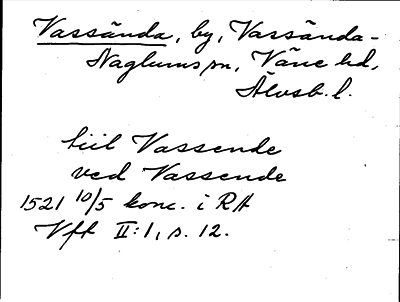 Vassända, by, Vassända-
Naglums sn, Väne hd,
Älvsb. l.
till Vassende
ved Vassende
1521 10/5 konc. i RA
Vft II:1, s. 12.